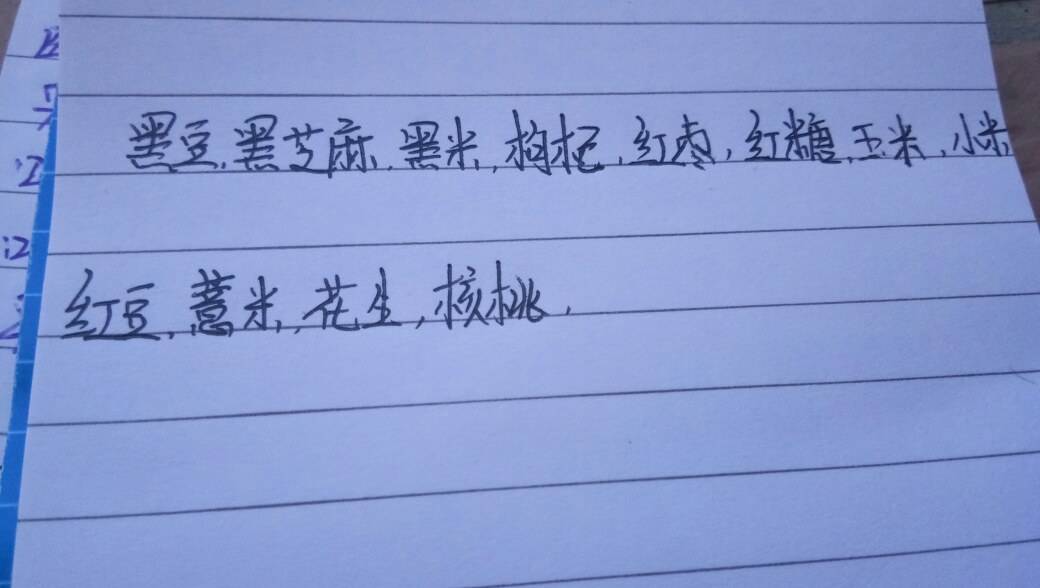 黑豆,黑芝麻,黑米,枸杞,红枣,红糖,玉米,小米
红豆,薏米,花生,核桃,